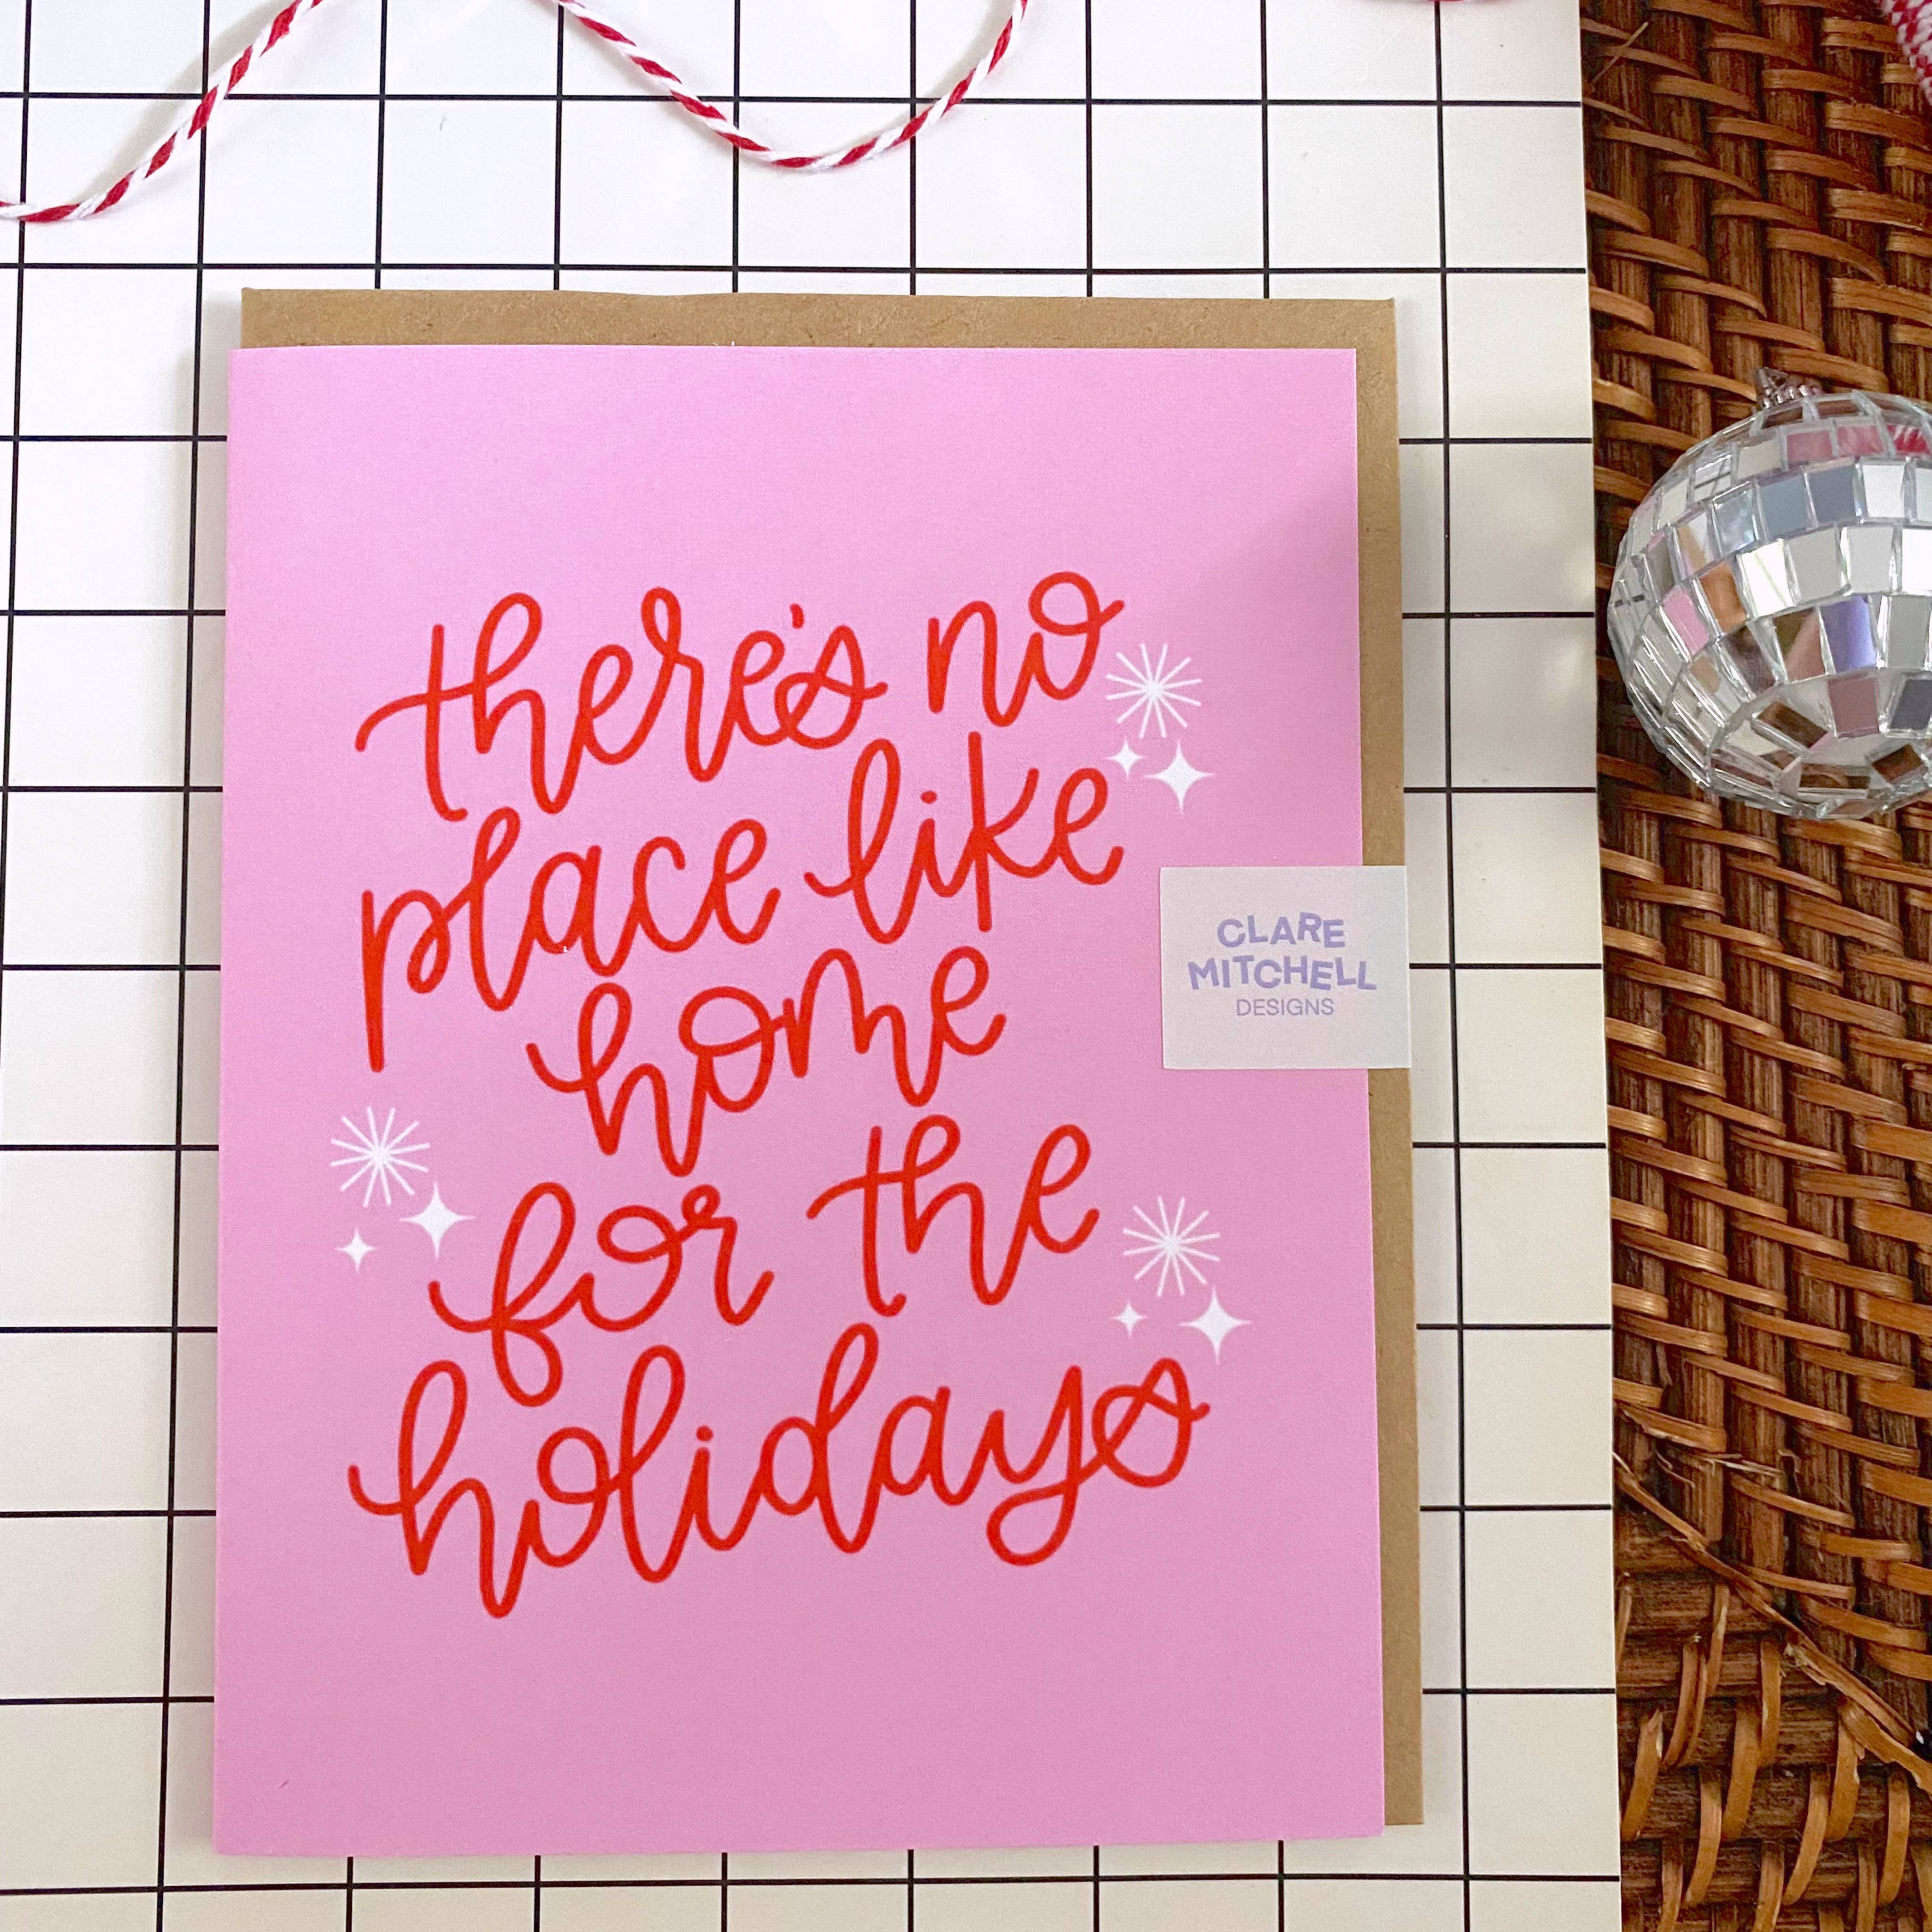 there's no
place like
home
for the
holidays
CLARE
MITCHELL
DESIGNS